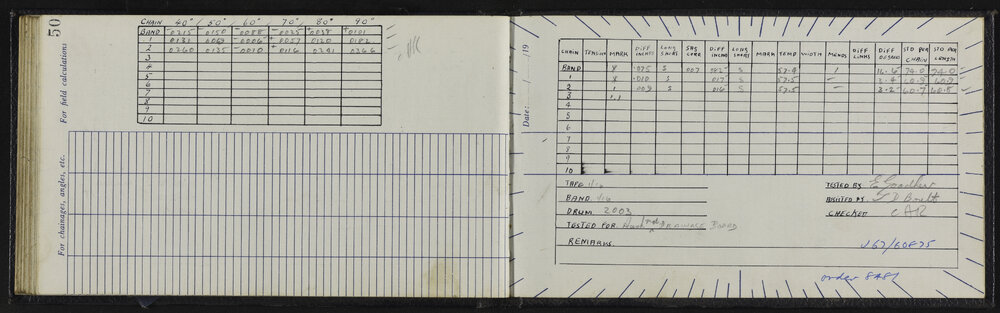 50
CHAIN 40° 50° 60° 70° 80° 90°
BAND -0215 -0150 -0088 -0025 +0038 +0101
1 0131 0069 -0006 +0057 0120 0182
2 0260 0135 -0010 +0116 0241 0366
3
4
5
6
7
8
9
10
For field calculations
For chainages, angles, etc.
Date: / /19
CHAIN TENSION MARK DIFF INCHES LONG SHORT SAG CORR DIFF INCHES LONG SHORT MARK TEMP WIDTH MENDS DIFF LINKS DIFF STD PER CHAIN STD PER LENGTH
BAND 8 .075 S 007 082 S 57.4 1 74.0 74.0
1 8 .010 S 017 S 57.5 - 60.9
2 1 009 S 016 S 57.5 - 3.2 60.7 60.8
3
4
5
6
7
8
9
10
TAPE 1/10
BAND 1/6
DRUM 2003
TESTED FOR DRAINAGE BOARD
REMARKS.
TESTED BY
ASSISTED BY
CHECKED
J67/60875
order